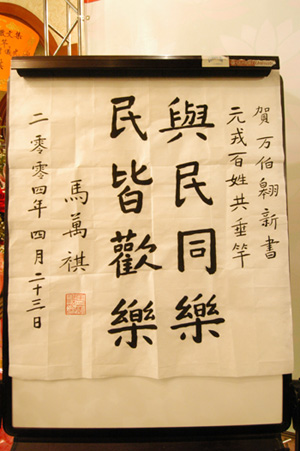 賀万伯翱新書
元戎百姓共垂竿
與民同樂
民皆歡樂
馬萬祺
二零零四年四月二十三日